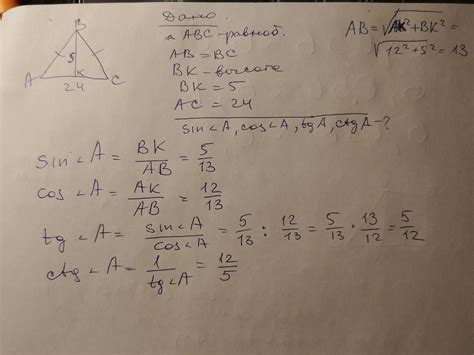 Дано
△ ABC - равноб.
AB = BC
BK - высота
BK = 5
AC = 24
sin∠A, cos∠A, tgA, ctgA - ?
AB = √AK² + BK² =
√12² + 5² = 13
B
5
A K C
24
sin∠A = BK/AB = 5/13
cos∠A = AK/AB = 12/13
tg∠A = sin∠A/cos∠A = 5/13 : 12/13 = 5/13 · 13/12 = 5/12
ctg∠A = 1/tg∠A = 12/5